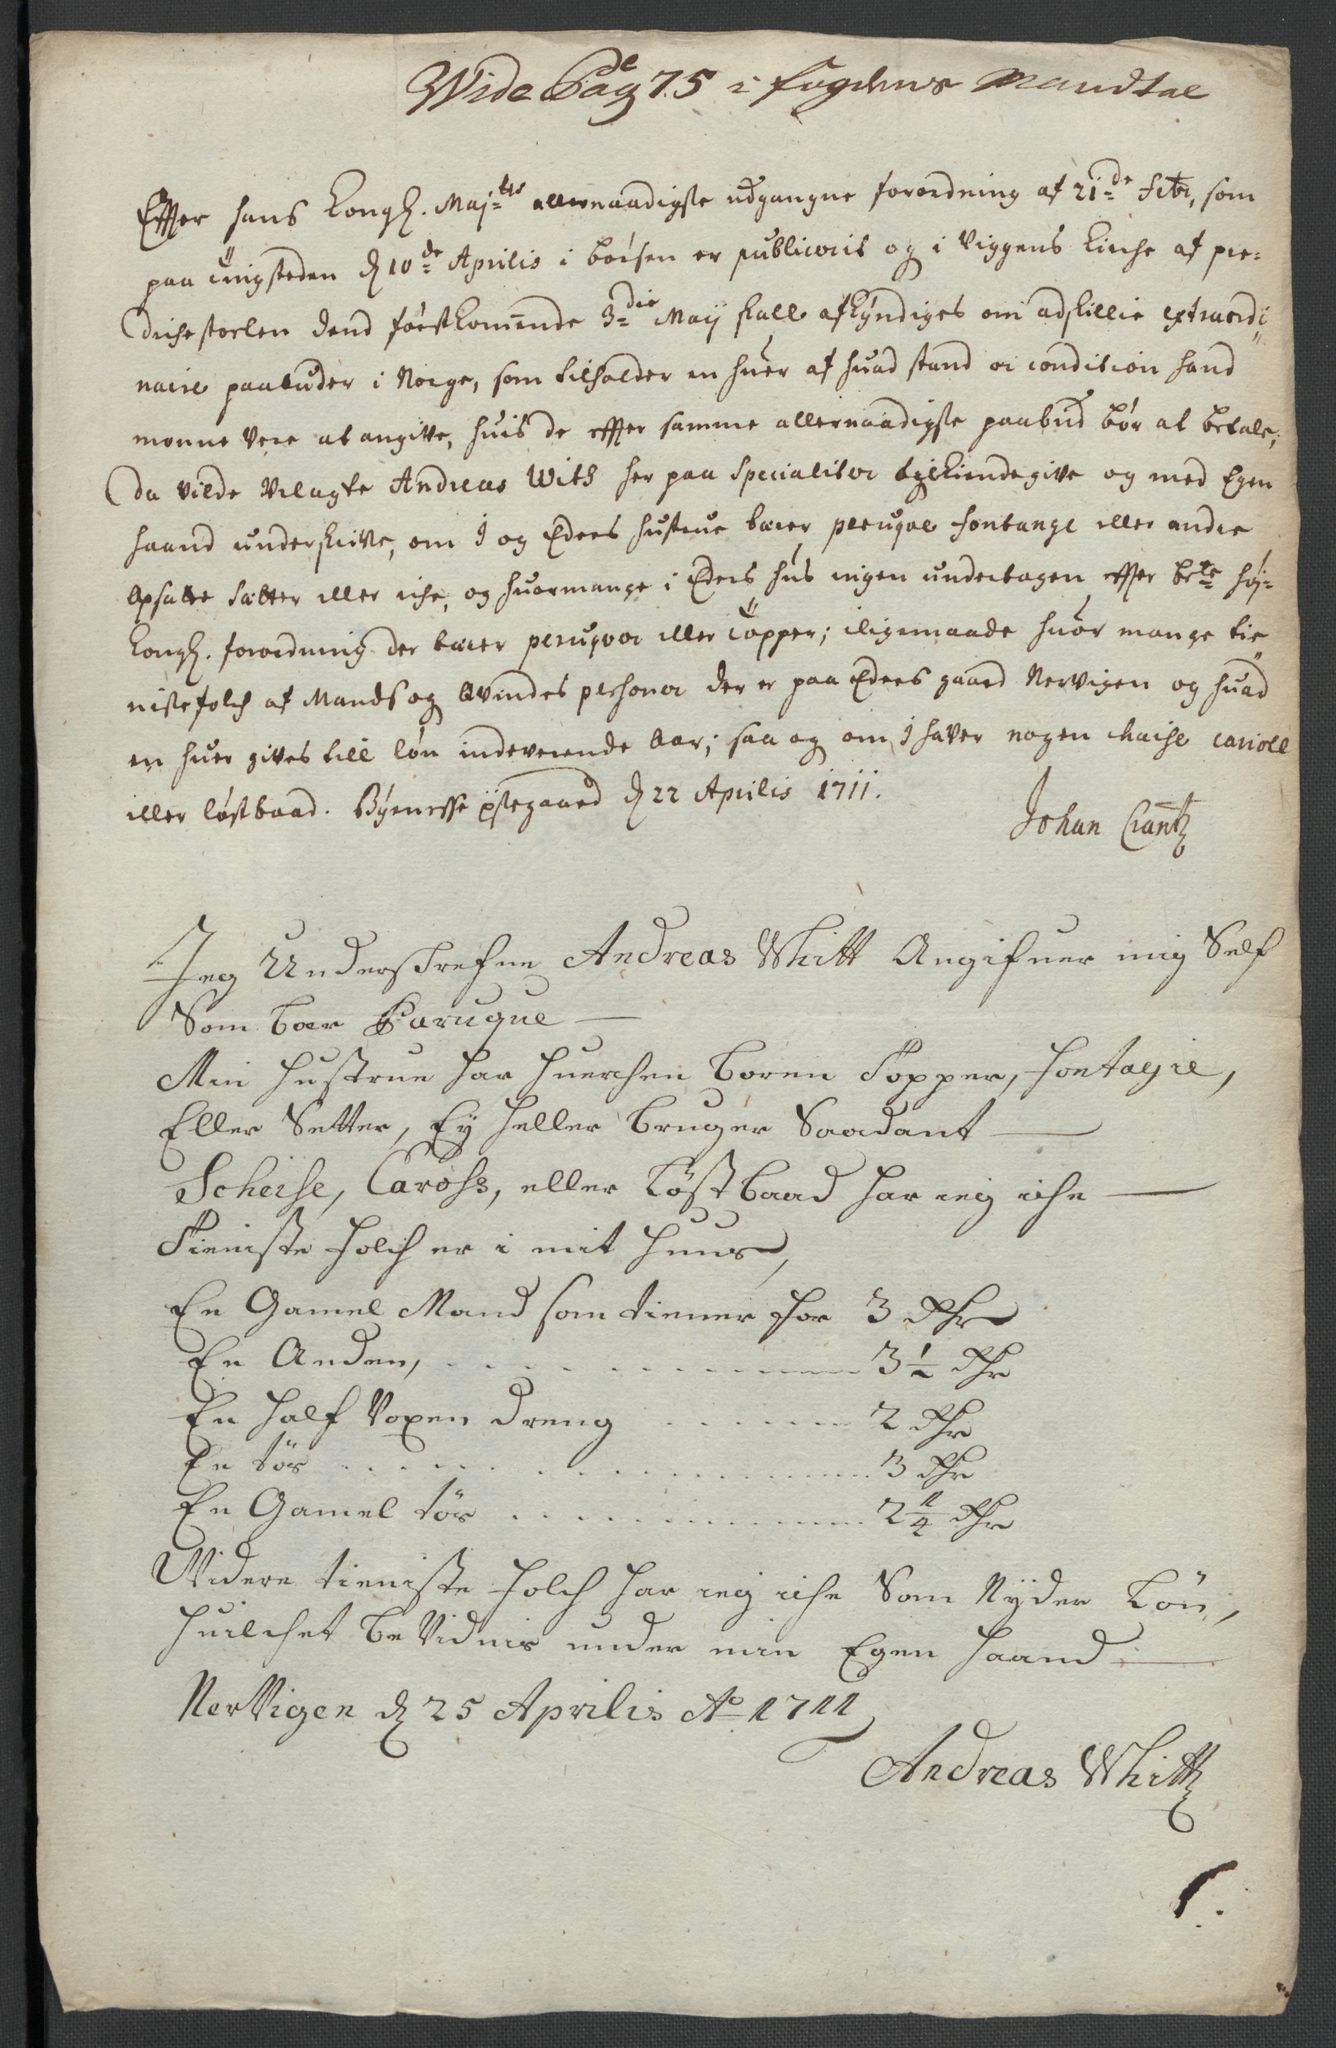 Wide Pag 75 i fogdens Mandtal
Effter hans Kongl. Maj:ts allernaadigste udgangne forordning af 21:de Febr, som
paa tingsteden d 10:de Aprilis i börsen er publiceris og i Viggens Kirche af præ-
dichestoelen dend förstkommende 3:die Maij skall afkyndiges om adskillie extraordi-
naire paabuder i Norge, som tilholder en huer af huad stand oc condition hand
monne være at angive, huis de effter samme allernaadigste paabud bör at betale;
da vilde Velagte Andreas With her paa specialiter tilkiendegive og med Egen
haand underskrive, om I og Eders hustrue bærer peruqve fontange eller andre
opsatte sætter eller iche, og huormange i Eders hus ingen undertagen effter br:te höj-
Kongl. forordning der bærer peruqver eller topper; iligemaade huor mange tie-
nistefolch af Mands og qvindes persohner der er paa Eders gaard Nervigen og huad
en huer gives till lön indeværende Aar; saa og om I haver nogen chaise cariol
eller löstbaad. Byenesse östegaard d 22 Aprilis 1711.
Johan Crantz
Jeg Underskrefne Andreas Whitt Angifuer mig Self
Som bær Paruque
Min hustrue har huerchen boren Topper, fontagie,
Eller Setter, Ey heller bruger Saadant
Scheise, Caross, eller Löstbaad har ieg iche
Tieniste folch er i mit huus,
En Gamel Mand som tiener for 3 Rdr
En Anden, 3½ Rdr
En half Voxen dreng 2 Rdr
En tös 3 Rdr
En Gamel tös 2¼ Rdr
Widere tieniste folch har ieg iche Som Nyder Lön,
huilchet beVidnis under min Egen haand
NerVigen d 25 Aprilis A:o 1711
Andreas Whitt